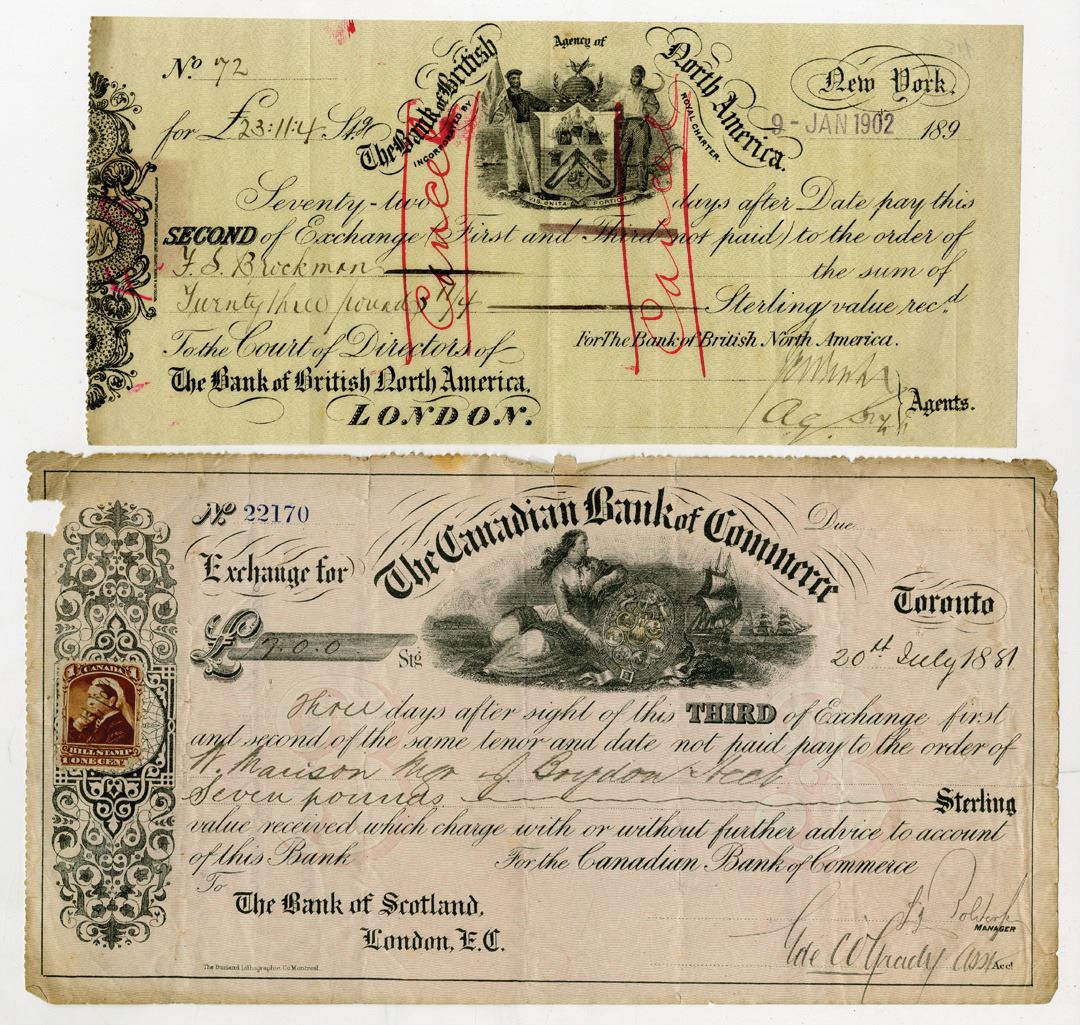 Agency of
The Bank of British North America.
INCORPORATED BY ROYAL CHARTER.
No 72
New York,
9-JAN 1902 189
for £23:11:4 Stg
VIS UNITA FORTIOR
Cancel
Cancel
Seventy-two days after Date pay this
SECOND of Exchange (First and Third not paid) to the order of
F. S. Brockman the sum of
Twenty three pounds 11/4 Sterling value recd.
To the Court of Directors of For The Bank of British North America.
The Bank of British North America,
LONDON. Agents.
No 22170
The Canadian Bank of Commerce
Due
Exchange for
Toronto
£ 7.0.0 Stg
20th July 1881
CANADA
BILL STAMP
ONE CENT
Three days after sight of this THIRD of Exchange first
and second of the same tenor and date not paid pay to the order of
W. Manson Mgr of
Seven pounds Sterling
value received which charge with or without further advice to account
of this Bank For the Canadian Bank of Commerce
To
The Bank of Scotland,
London, E.C.
MANAGER
O'Grady Asst Acct
The Burland Lithographic Co Montreal